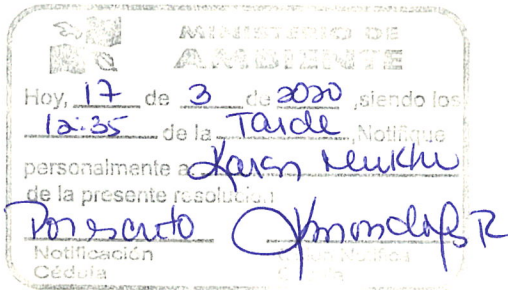 MINISTERIO DE
AMBIENTE
Hoy, 17 de 3 de 2020, siendo los
12:35 de la Tarde, Notifique
personalmente a Karen
de la presente resolución
Por escrito
Notificación
Cédula